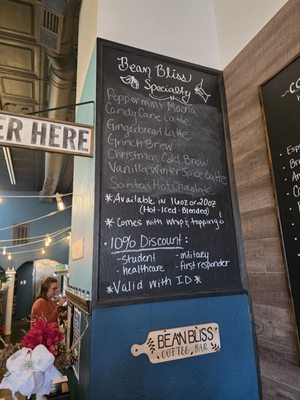 Bean Bliss
Specialty
Peppermint Mocha
Candy Cane Latte
Gingerbread Latte
Grinch Brew
Christmas Cold Brew
Vanilla Winter Spice Latte
Santa's Hot Chocolate
*Available in 16oz or 20oz
(Hot - Iced - Blended)
*Comes with whip & topping!
10% Discount:
-Student
-military
-healthcare
-first responder
*Valid with ID*
ER HERE
BEAN BLISS
COFFEE BAR